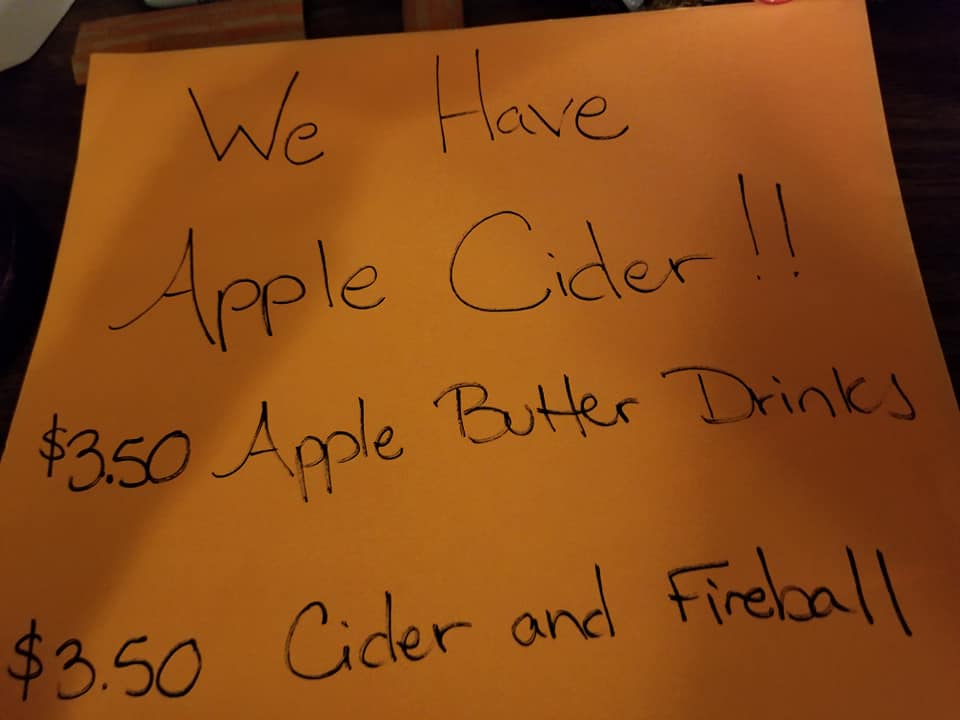 We Have
Apple Cider!!
$3.50 Apple Butter Drinks
$3.50 Cider and Fireball